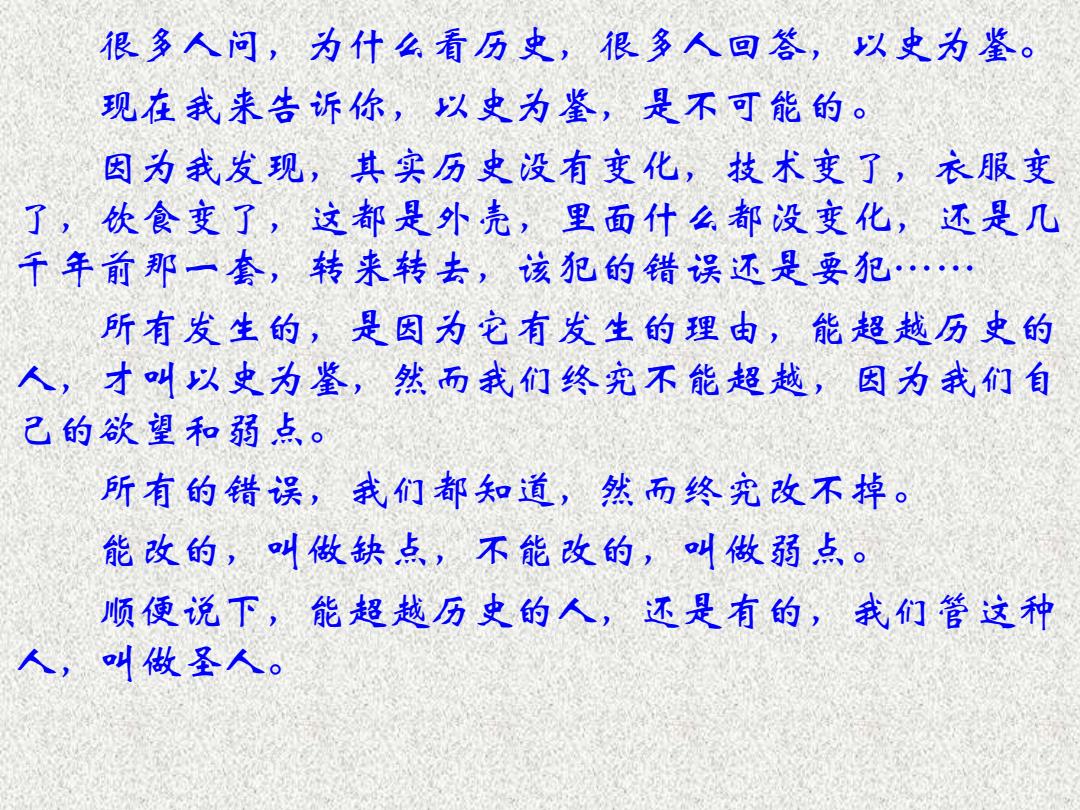 很多人问，为什么看历史，很多人回答，以史为鉴。
现在我来告诉你，以史为鉴，是不可能的。
因为我发现，其实历史没有变化，技术变了，衣服变
了，饮食变了，这都是外壳，里面什么都没变化，还是几
千年前那一套，转来转去，该犯的错误还是要犯……
所有发生的，是因为它有发生的理由，能超越历史的
人，才叫以史为鉴，然而我们终究不能超越，因为我们自
己的欲望和弱点。
所有的错误，我们都知道，然而终究改不掉。
能改的，叫做缺点，不能改的，叫做弱点。
顺便说下，能超越历史的人，还是有的，我们管这种
人，叫做圣人。